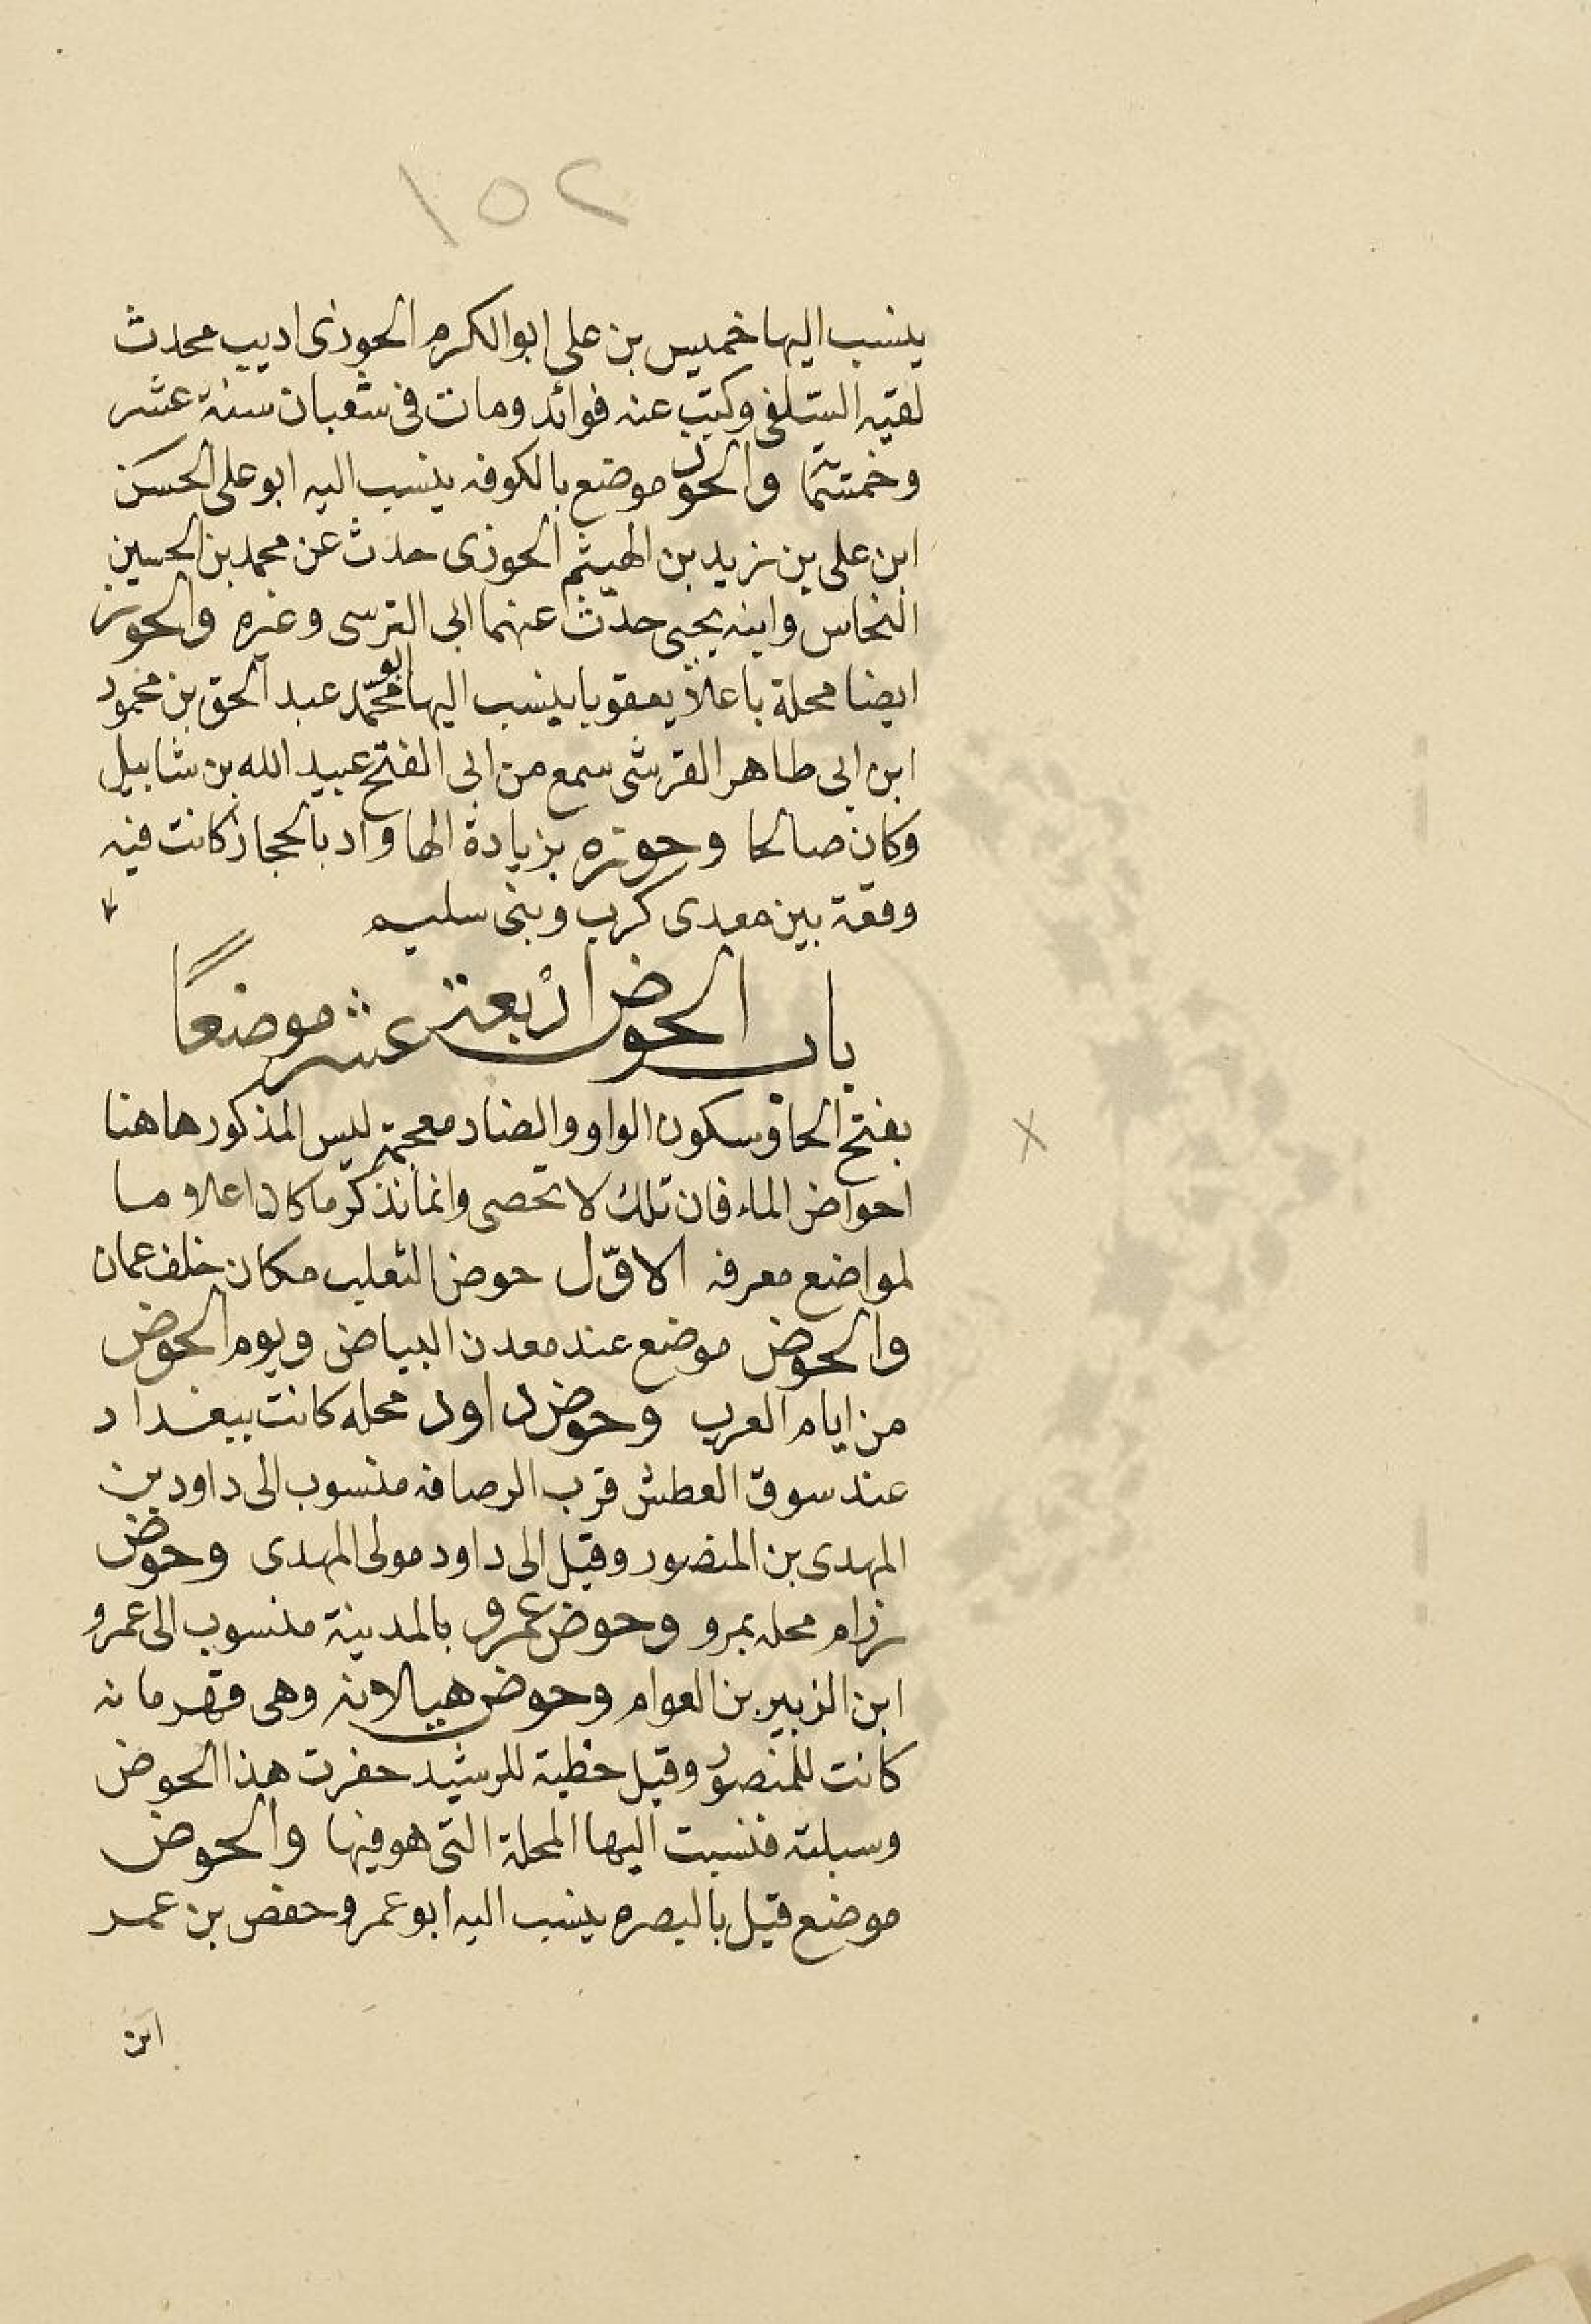 ١٥٢
ينسب اليها خميس بن على ابو الكرم الحوزى اديب محدث
لقيه السلفى وكتب عنه فوائد ومات فى شعبان سنة عشر
وخمسمائة والحوز موضع بالكوفه ينسب اليه ابو على الحسن
ابن على بن زيد بن الهيثم الحوزى حدث عن محمد بن الحسين
النحاس وابنه يحيى حدّث عنهما ابى النرسى وغيره والحوز
ايضا محلة باعلا يعقوبا ينسب اليها ابو محمّد عبد الحق بن محمود
ابن ابى طاهر القرشى سمع من ابى الفتح عبيد الله بن شابيل
وكان صالحا وحوزه بزيادة الها واد بالحجاز كانت فيه
وقعة بين معدى كرب وبنى سليم
باب الحوض اربعة عشر موضعًا
بفتح الحا وسكون الواو والضاد معجمة ليس المذكور هاهنا
احواض الماء فان تلك لا تحصى وانما نذكر ما كان اعلاما
لمواضع معرفه الاوّل حوض الثعلب مكان خلف عمان
والحوض موضع عند معدن البياض ويوم الحوض
من ايام العرب وحوض داود محله كانت ببغداد
عند سوق العطش قرب الرصافه منسوب الى داود بن
المهدى بن المنصور وقيل الى داود مولى المهدى وحوض
رزام محله بمرو وحوض عمرو بالمدينة منسوب الى عمرو
ابن الزبير بن العوام وحوض هيلانه وهى قهرمانه
كانت للمنصور وقيل حظية للرشيد حفرت هذا الحوض
وسبلته فنسبت اليها المحلة التى هو فيها والحوض
موضع قيل بالبصره ينسب اليه ابو عمرو حفص بن عمر
ابن